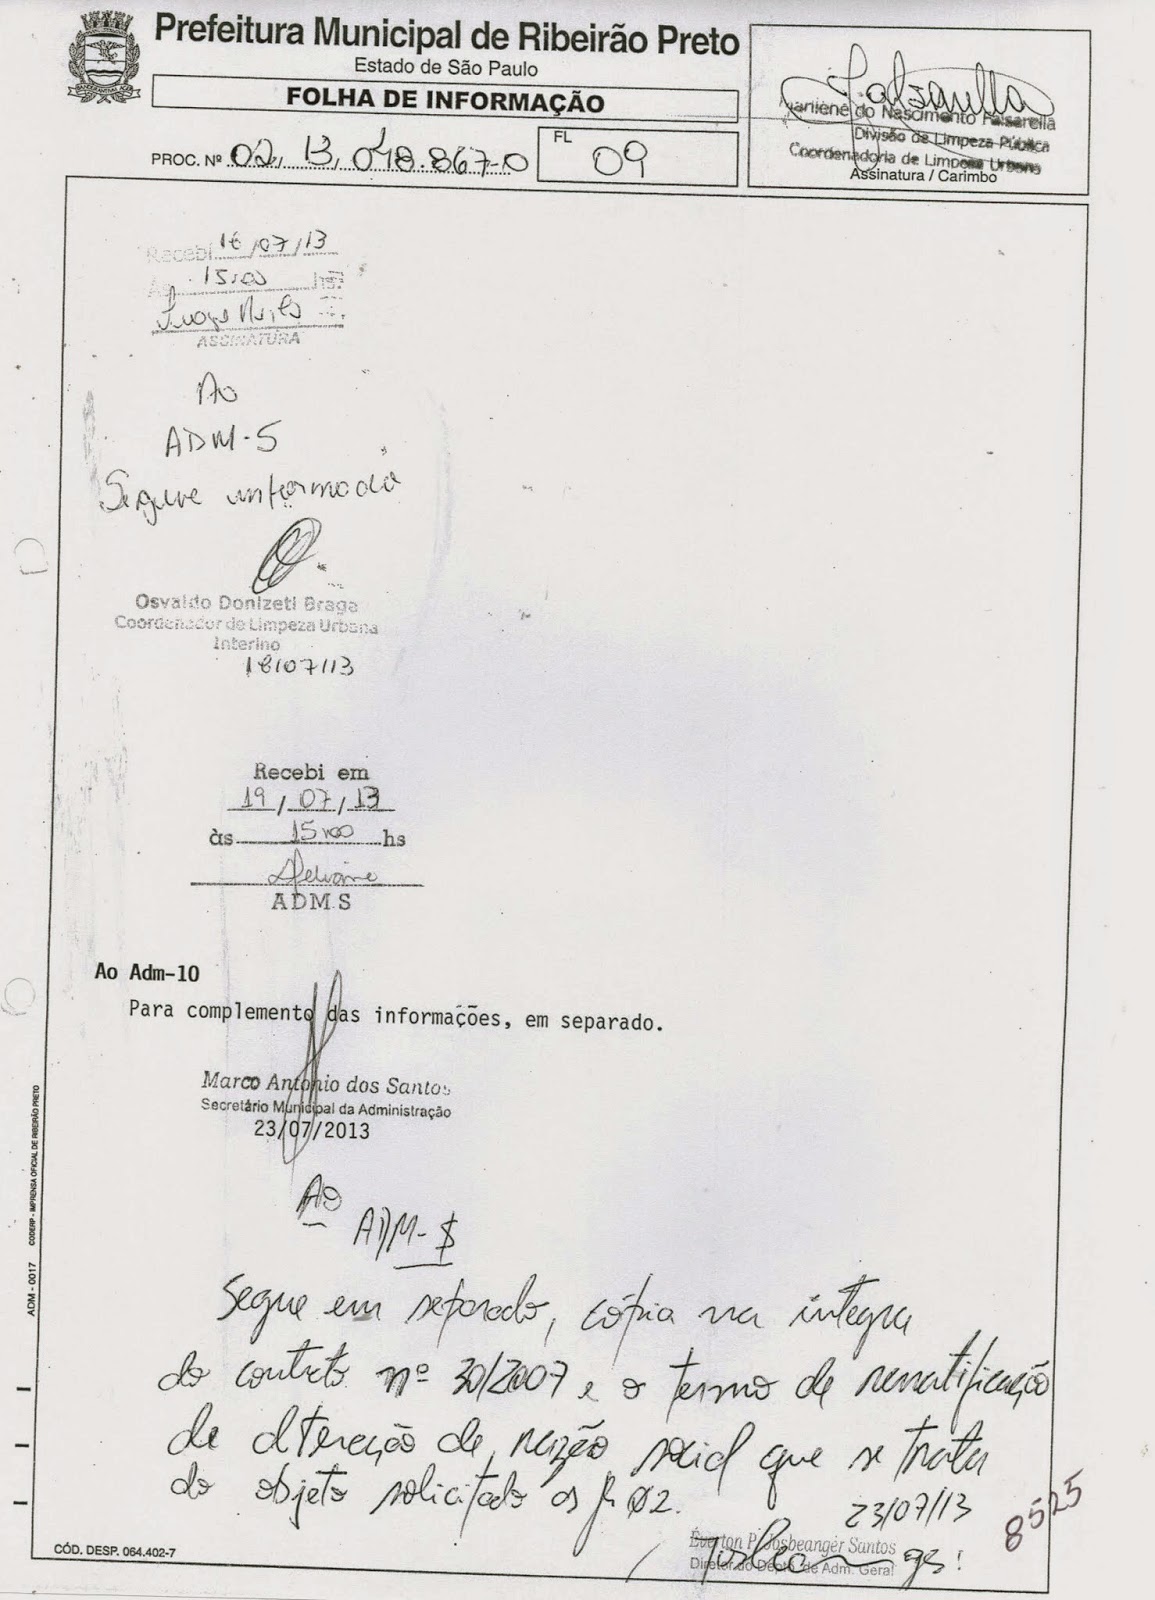 Prefeitura Municipal de Ribeirão Preto
Estado de São Paulo
FOLHA DE INFORMAÇÃO
PROC. Nº 02.13.048.867-0
FL
09
do Nascimento Falsarella
Divisão de Limpeza Pública
Coordenadoria de Limpeza Urbana
Assinatura / Carimbo
Recebi 16/07/13
Às 15:00 hs.
ASSINATURA
Ao
ADM-5
Segue informado
Osvaldo Donizeti Braga
Coordenador de Limpeza Urbana
Interino
18/07/13
Recebi em
19/07/13
às 15:00 hs
ADM.S
Ao Adm-10
Para complemento das informações, em separado.
Marco Antonio dos Santos
Secretário Municipal da Administração
23/07/2013
Ao
ADM-
Segue em separado, cópia na íntegra
do contrato nº 30/2007 e o termo de rerratificação
de alteração de razão social que se trata
do objeto solicitado as fl 02.
23/07/13
8525
Everton Santos
Diretor do Depto. de Adm. Geral
ADM - 0017 CODERP - IMPRENSA OFICIAL DE RIBEIRÃO PRETO
CÓD. DESP. 064.402-7